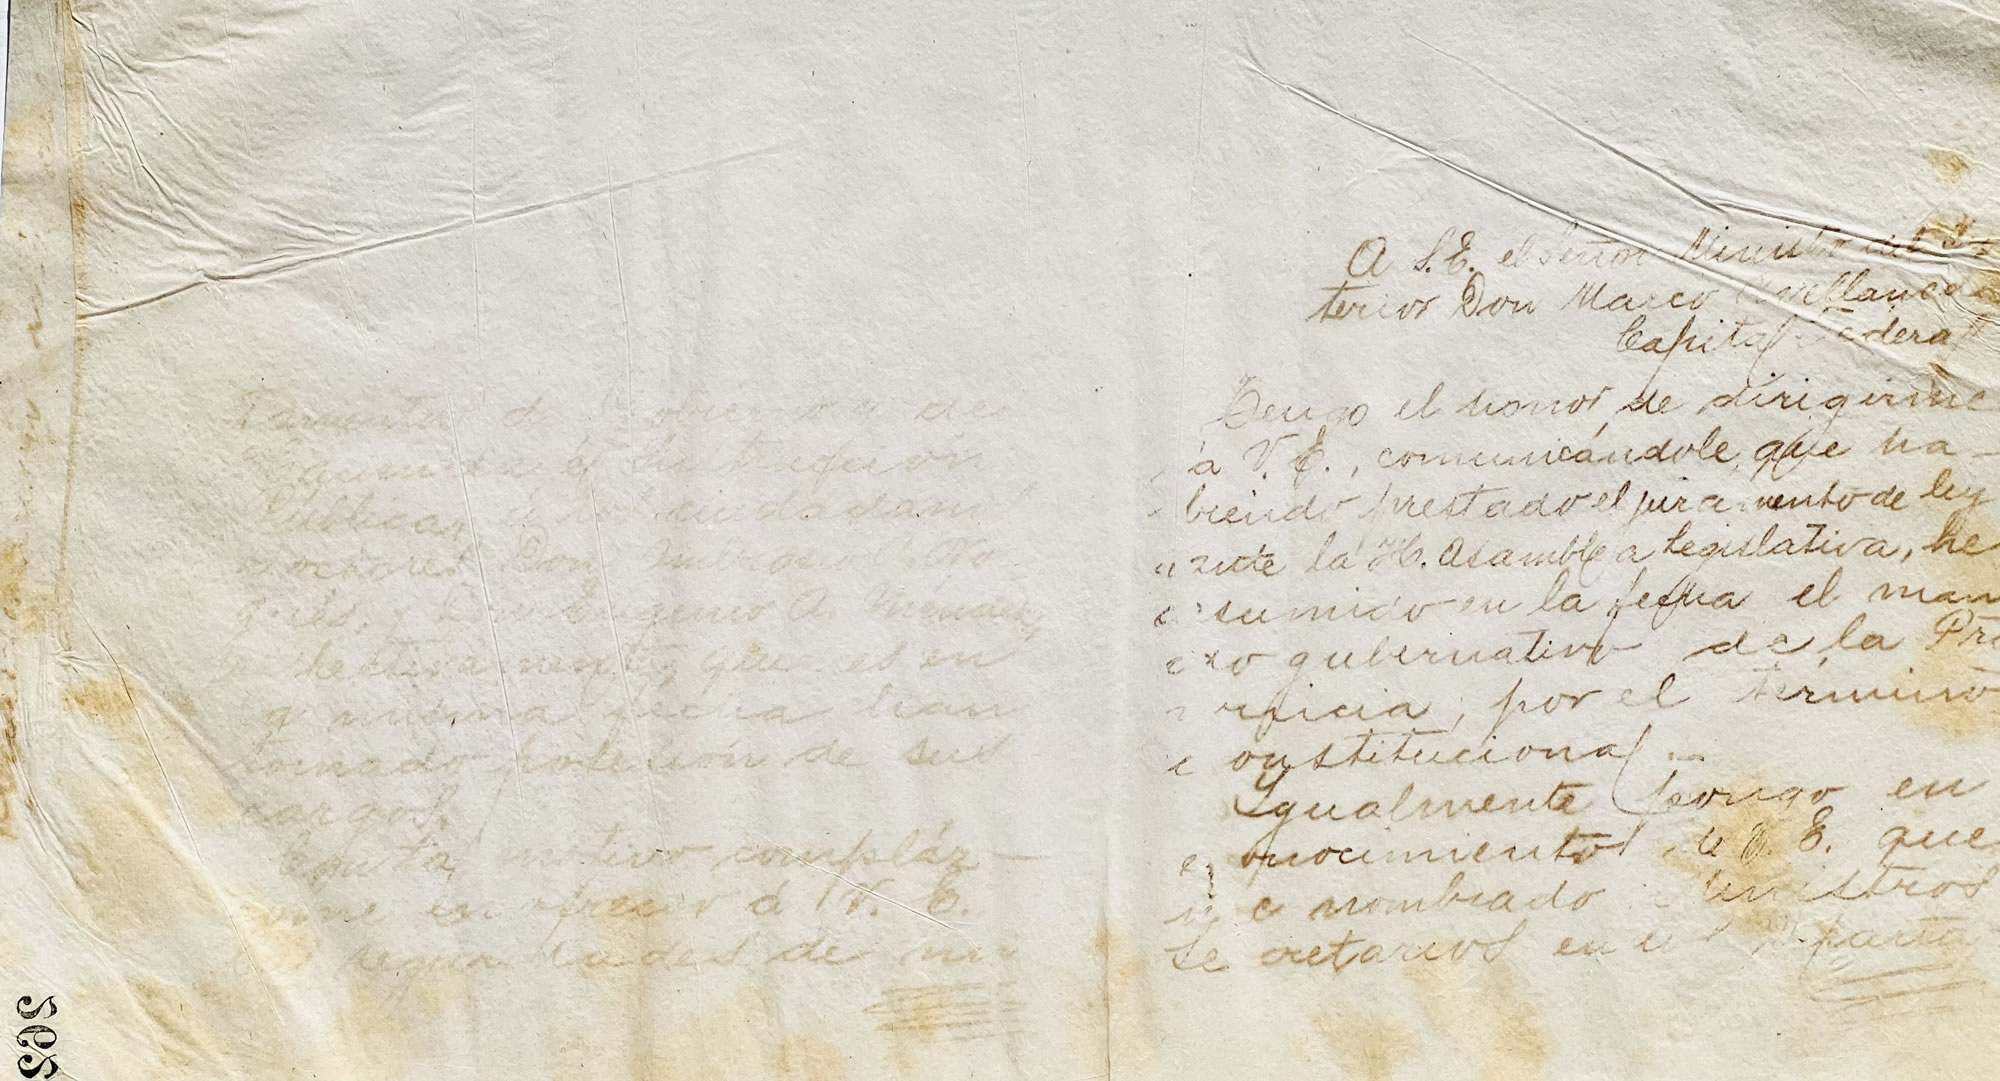 A S.E. el Señor Ministro del In
terior Don Marco Avellaneda
Capital Federal
Tengo el honor de dirigirme
á V. E., comunicándole, que ha-
biendo prestado el juramento de ley
ante la H. Asamblea Legislativa, he
asumido en la fecha el man
gubernativo de la Pro
vincia, por el término
constitucional.—
Igualmente pongo en
conocimiento de V. E. que
he nombrado Ministros
Secretarios en el Departa
de Gobierno
é Instrucción
Pública, á los ciudadanos
Doctores Don
gués, y Don Eugenio A. Mendez,
respectivamente, que es en
misma fecha han
tomado posesión de sus
cargos.
motivo compláz-
come en ofrecer á V. E.
seguridades de mi